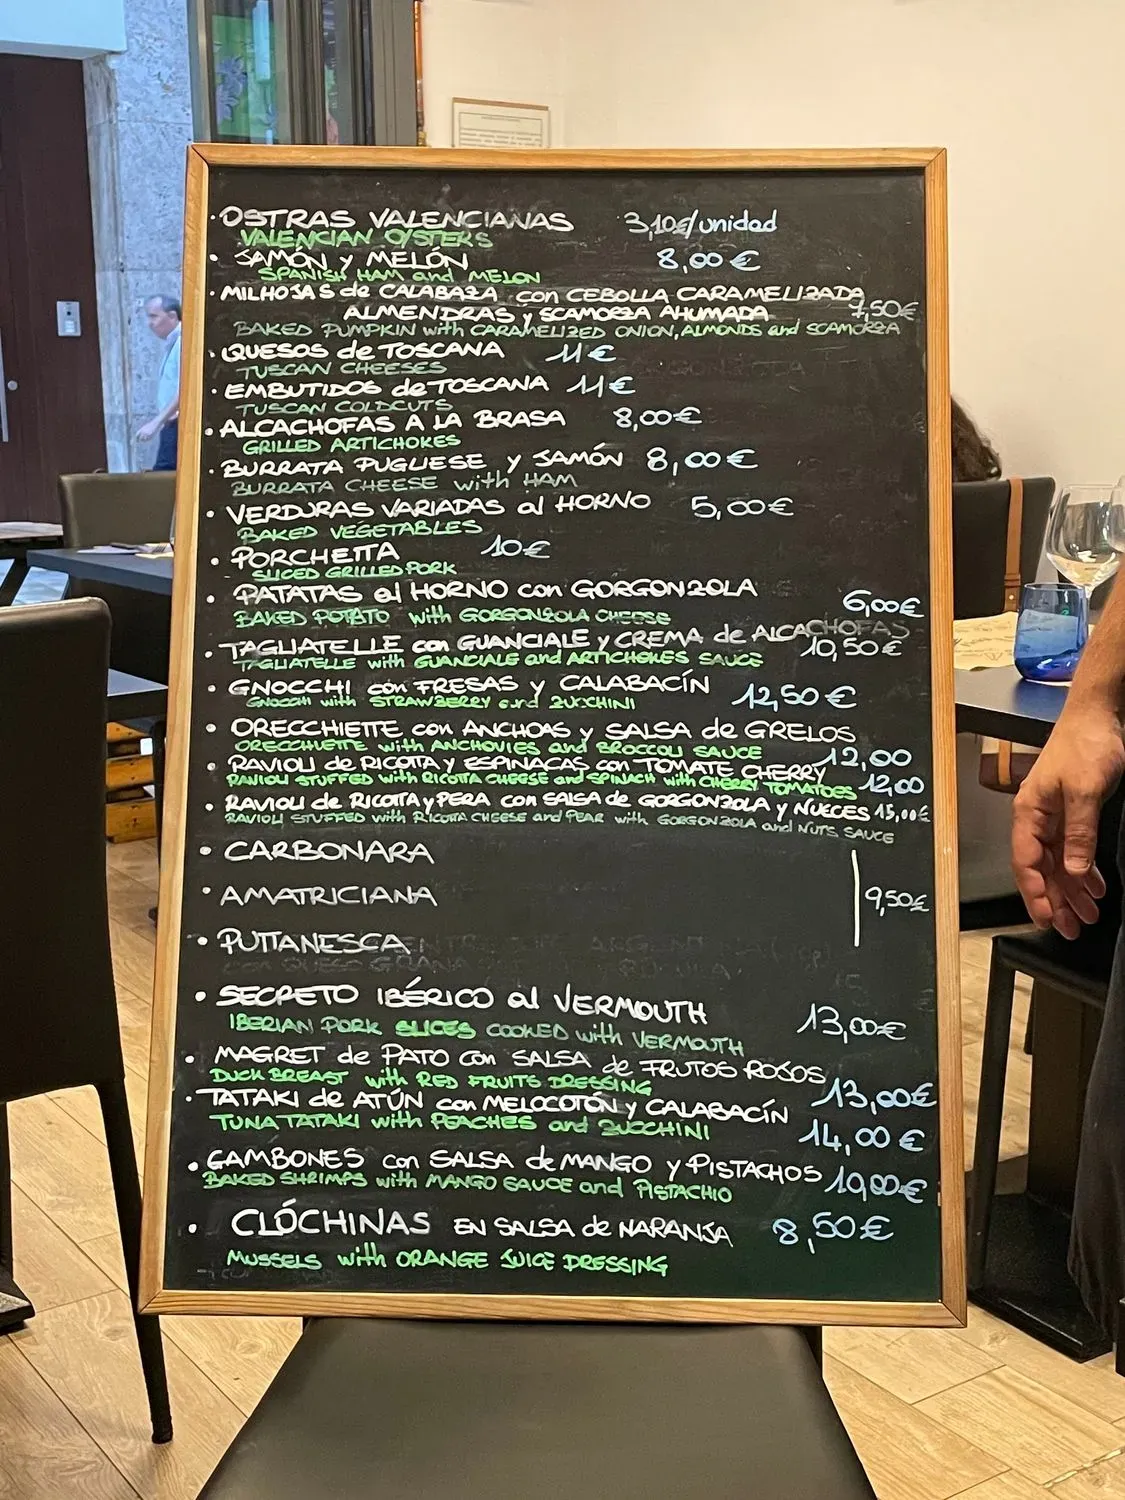 · OSTRAS VALENCIANAS 3,10€/unidad
VALENCIAN OYSTERS
· JAMÓN y MELÓN 8,00€
SPANISH HAM and MELON
· MILHOJAS de CALABAZA con CEBOLLA CARAMELIZADA
ALMENDRAS y SCAMORZA AHUMADA 7,50€
BAKED PUMPKIN with CARAMELIZED ONION, ALMONDS and SCAMORZA
· QUESOS de TOSCANA 11€
TUSCAN CHEESES
· EMBUTIDOS de TOSCANA 11€
TUSCAN COLDCUTS
· ALCACHOFAS A LA BRASA 8,00€
GRILLED ARTICHOKES
· BURRATA PUGLIESE y JAMÓN 8,00€
BURRATA CHEESE with HAM
· VERDURAS VARIADAS al HORNO 5,00€
BAKED VEGETABLES
· PORCHETTA 10€
SLICED GRILLED PORK
· PATATAS al HORNO con GORGONZOLA 6,00€
BAKED POTATO with GORGONZOLA CHEESE
· TAGLIATELLE con GUANCIALE y CREMA de ALCACHOFAS 10,50€
TAGLIATELLE with GUANCIALE and ARTICHOKES SAUCE
· GNOCCHI con FRESAS y CALABACÍN 12,50€
GNOCCHI with STRAWBERRY and ZUCCHINI
· ORECCHIETTE con ANCHOAS y SALSA de GRELOS
ORECCHIETTE with ANCHOVIES and BROCCOLI SAUCE 12,00
· RAVIOLI de RICOTTA Y ESPINACAS con TOMATE CHERRY
RAVIOLI STUFFED with RICOTTA CHEESE and SPINACH with CHERRY TOMATOES 12,00
· RAVIOLI de RICOTTA y PERA con SALSA de GORGONZOLA y NUECES 13,00€
RAVIOLI STUFFED with RICOTTA CHEESE and PEAR with GORGONZOLA and NUTS SAUCE
· CARBONARA
· AMATRICIANA 9,50€
· PUTTANESCA
· SECRETO IBÉRICO al VERMOUTH 13,00€
IBERIAN PORK SLICES COOKED with VERMOUTH
· MAGRET de PATO con SALSA de FRUTOS ROSOS
DUCK BREAST with RED FRUITS DRESSING 13,00€
· TATAKI de ATÚN con MELOCOTÓN y CALABACÍN
TUNA TATAKI with PEACHES and ZUCCHINI 14,00€
· GAMBONES con SALSA de MANGO y PISTACHOS 10,00€
BAKED SHRIMPS with MANGO SAUCE and PISTACHIO
· CLÓCHINAS EN SALSA de NARANJA 8,50€
MUSSELS with ORANGE JUICE DRESSING